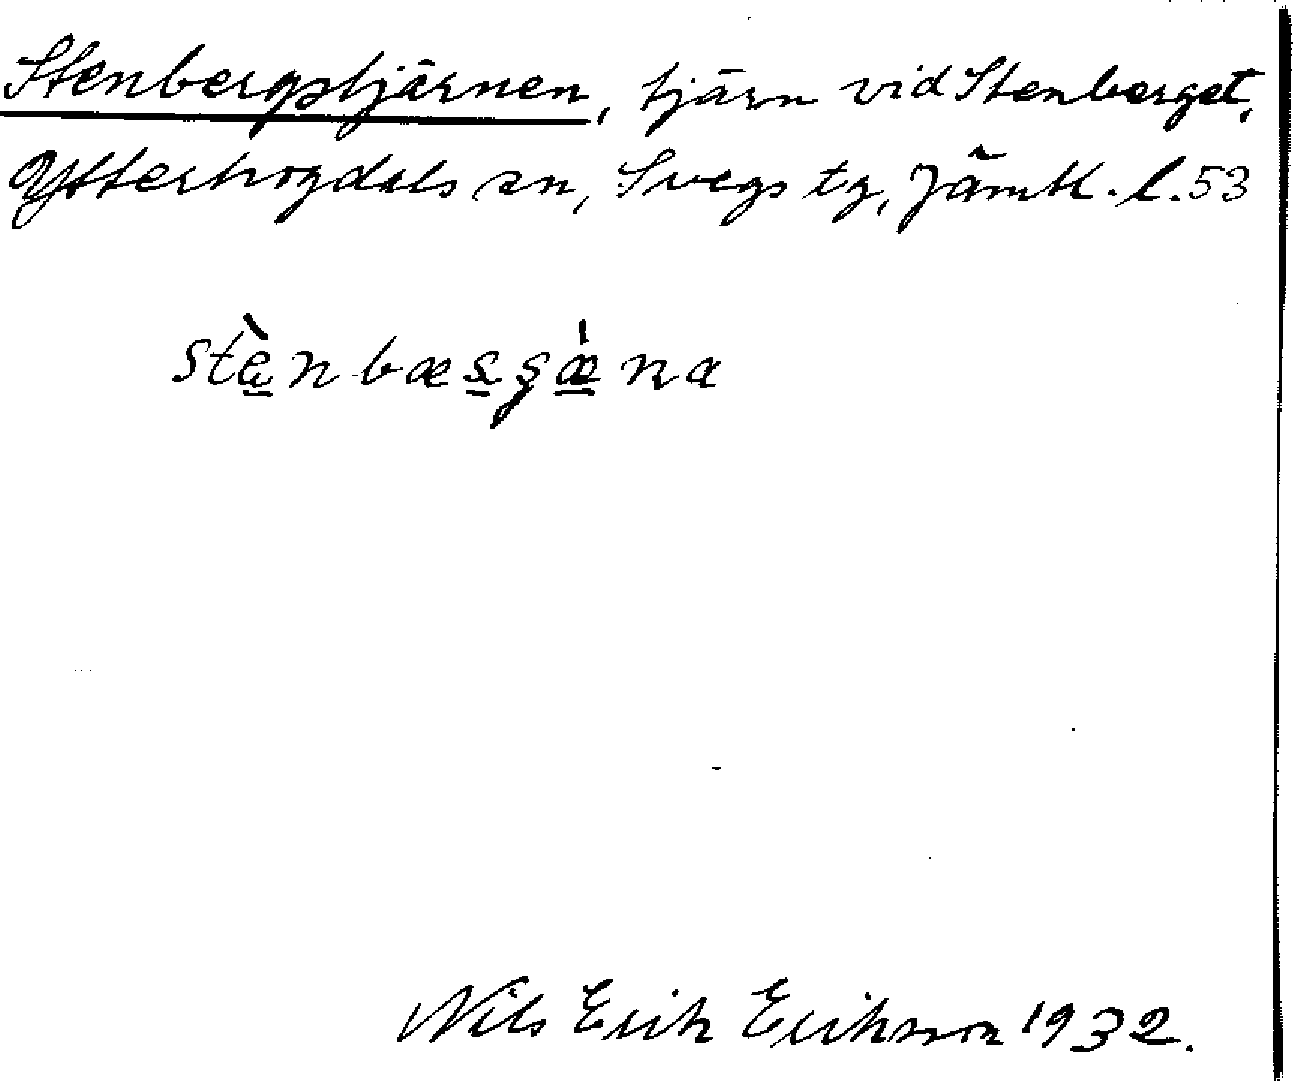 Stenbergstjärnen, tjärn vid Stenberget,
Ytterhogdals sn, Svegs tg, Jämtl. l. 53
stè̱nbæs̱ʂæ̱̀na
Nils Erik Eriksson 1932.